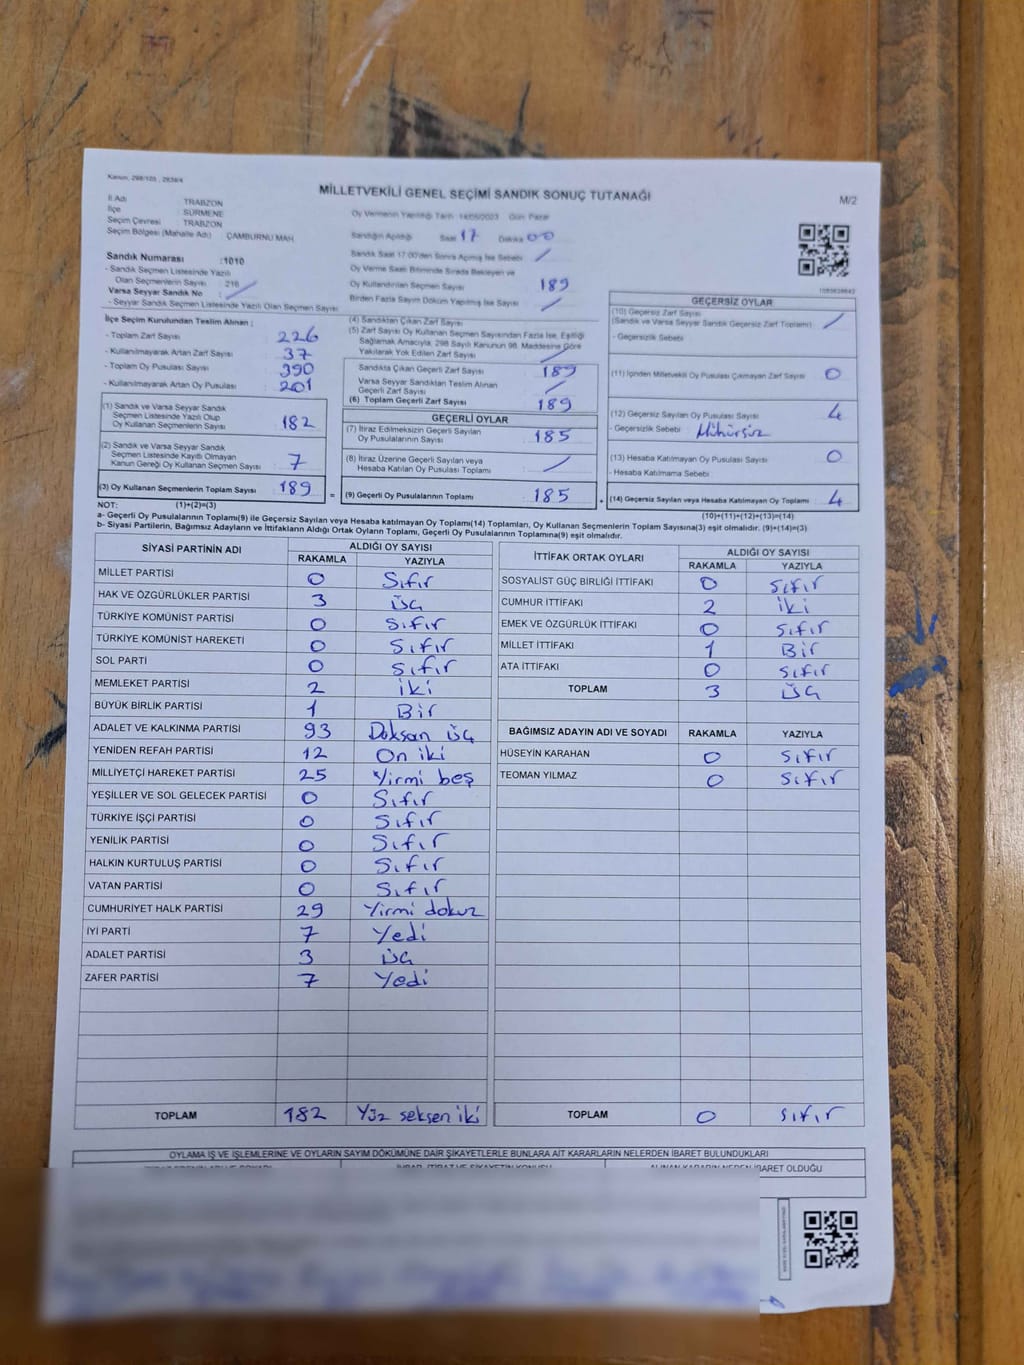 Kanun; 298/105 , 2839/4
MİLLETVEKİLİ GENEL SEÇİMİ SANDIK SONUÇ TUTANAĞI
M/2
İl Adı TRABZON
İlçe SÜRMENE
Seçim Çevresi TRABZON
Seçim Bölgesi (Mahalle Adı) : ÇAMBURNU MAH
Oy Vermenin Yapıldığı Tarih: 14/05/2023 Gün: Pazar
Sandığın Açıldığı Saat 17 Dakika 00
Sandık Saat 17:00'den Sonra Açılmış İse Sebebi /
Oy Verme Saati Bitiminde Sırada Bekleyen ve
Oy Kullandırılan Seçmen Sayısı 189
Birden Fazla Sayım Döküm Yapılmış İse Sayısı /
Sandık Numarası :1010
- Sandık Seçmen Listesinde Yazılı
Olan Seçmenlerin Sayısı : 216
Varsa Seyyar Sandık No : /
- Seyyar Sandık Seçmen Listesinde Yazılı Olan Seçmen Sayısı :
İlçe Seçim Kurulundan Teslim Alınan ;
- Toplam Zarf Sayısı : 226
- Kullanılmayarak Artan Zarf Sayısı : 37
- Toplam Oy Pusulası Sayısı : 390
- Kullanılmayarak Artan Oy Pusulası : 201
(1) Sandık ve Varsa Seyyar Sandık
Seçmen Listesinde Yazılı Olup
Oy Kullanan Seçmenlerin Sayısı : 182
(2) Sandık ve Varsa Seyyar Sandık
Seçmen Listesinde Kayıtlı Olmayan
Kanun Gereği Oy Kullanan Seçmen Sayısı : 7
(3) Oy Kullanan Seçmenlerin Toplam Sayısı : 189
(4) Sandıktan Çıkan Zarf Sayısı
(5) Zarf Sayısı Oy Kullanan Seçmen Sayısından Fazla İse, Eşitliği
Sağlamak Amacıyla, 298 Sayılı Kanunun 98. Maddesine Göre
Yakılarak Yok Edilen Zarf Sayısı /
Sandıkta Çıkan Geçerli Zarf Sayısı : 189
Varsa Seyyar Sandıktan Teslim Alınan
Geçerli Zarf Sayısı : /
(6) Toplam Geçerli Zarf Sayısı : 189
GEÇERLİ OYLAR
(7) İtiraz Edilmeksizin Geçerli Sayılan
Oy Pusulalarının Sayısı : 185
(8) İtiraz Üzerine Geçerli Sayılan veya
Hesaba Katılan Oy Pusulası Toplamı : /
= (9) Geçerli Oy Pusulalarının Toplamı : 185
GEÇERSİZ OYLAR
(10) Geçersiz Zarf Sayısı
(Sandık ve Varsa Seyyar Sandık Geçersiz Zarf Toplamı) : /
- Geçersizlik Sebebi :
(11) İçinden Milletvekili Oy Pusulası Çıkmayan Zarf Sayısı : 0
(12) Geçersiz Sayılan Oy Pusulası Sayısı : 4
- Geçersizlik Sebebi : Mühürsüz
(13) Hesaba Katılmayan Oy Pusulası Sayısı : 0
- Hesaba Katılmama Sebebi :
+ (14) Geçersiz Sayılan veya Hesaba Katılmayan Oy Toplamı : 4
NOT: (1)+(2)=(3) (10)+(11)+(12)+(13)=(14)
a- Geçerli Oy Pusulalarının Toplamı(9) ile Geçersiz Sayılan veya Hesaba katılmayan Oy Toplamı(14) Toplamları, Oy Kullanan Seçmenlerin Toplam Sayısına(3) eşit olmalıdır. (9)+(14)=(3)
b- Siyasi Partilerin, Bağımsız Adayların ve İttifakların Aldığı Ortak Oyların Toplamı, Geçerli Oy Pusulalarının Toplamına(9) eşit olmalıdır.
SİYASİ PARTİNİN ADI ALDIĞI OY SAYISI
RAKAMLA YAZIYLA
MİLLET PARTİSİ 0 Sıfır
HAK VE ÖZGÜRLÜKLER PARTİSİ 3 Üç
TÜRKİYE KOMÜNİST PARTİSİ 0 Sıfır
TÜRKİYE KOMÜNİST HAREKETİ 0 Sıfır
SOL PARTİ 0 Sıfır
MEMLEKET PARTİSİ 2 İki
BÜYÜK BİRLİK PARTİSİ 1 Bir
ADALET VE KALKINMA PARTİSİ 93 Doksan üç
YENİDEN REFAH PARTİSİ 12 On iki
MİLLİYETÇİ HAREKET PARTİSİ 25 Yirmi beş
YEŞİLLER VE SOL GELECEK PARTİSİ 0 Sıfır
TÜRKİYE İŞÇİ PARTİSİ 0 Sıfır
YENİLİK PARTİSİ 0 Sıfır
HALKIN KURTULUŞ PARTİSİ 0 Sıfır
VATAN PARTİSİ 0 Sıfır
CUMHURİYET HALK PARTİSİ 29 Yirmi dokuz
İYİ PARTİ 7 Yedi
ADALET PARTİSİ 3 Üç
ZAFER PARTİSİ 7 Yedi
TOPLAM 182 Yüz seksen iki
İTTİFAK ORTAK OYLARI ALDIĞI OY SAYISI
RAKAMLA YAZIYLA
SOSYALİST GÜÇ BİRLİĞİ İTTİFAKI 0 Sıfır
CUMHUR İTTİFAKI 2 İki
EMEK VE ÖZGÜRLÜK İTTİFAKI 0 Sıfır
MİLLET İTTİFAKI 1 Bir
ATA İTTİFAKI 0 Sıfır
TOPLAM 3 Üç
BAĞIMSIZ ADAYIN ADI VE SOYADI RAKAMLA YAZIYLA
HÜSEYİN KARAHAN 0 Sıfır
TEOMAN YILMAZ 0 Sıfır
TOPLAM 0 Sıfır
OYLAMA İŞ VE İŞLEMLERİNE VE OYLARIN SAYIM DÖKÜMÜNE DAİR ŞİKAYETLERLE BUNLARA AİT KARARLARIN NELERDEN İBARET BULUNDUKLARI
ALINAN KARARIN NEDEN İBARET OLDUĞU